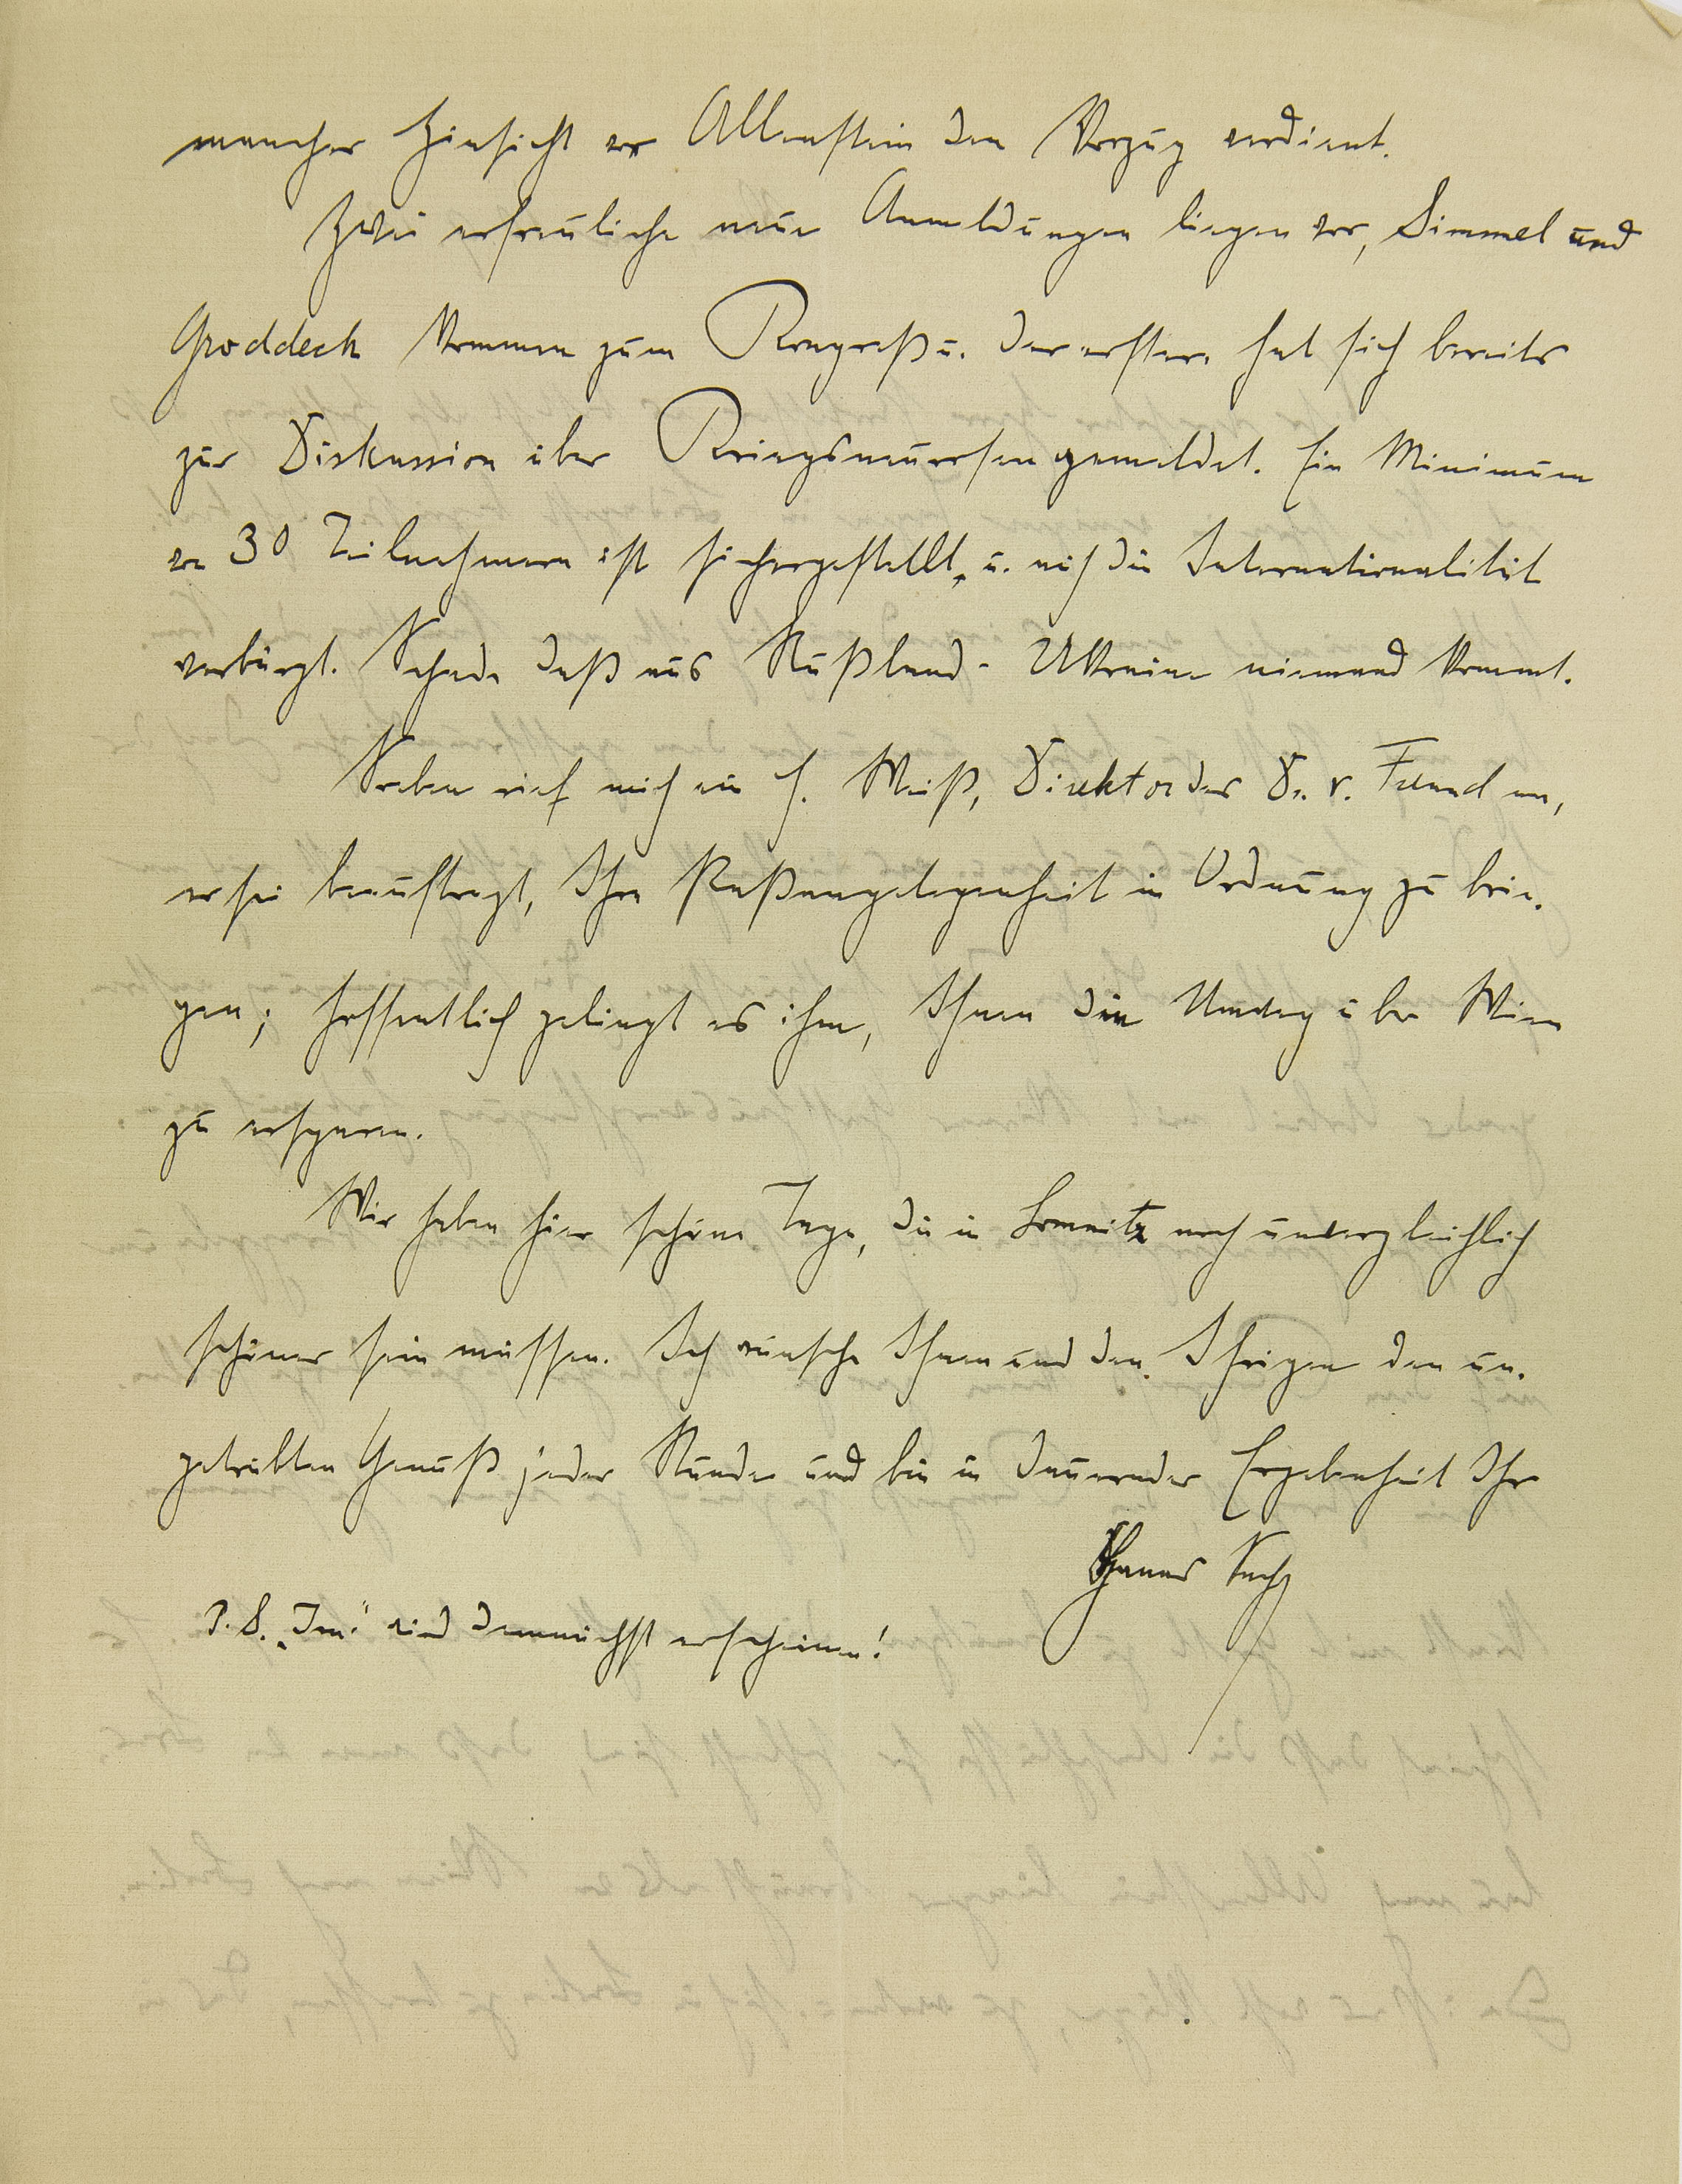 mancher Hinsicht vor Allenstein den Vorzug verdient.
Zwei erfreuliche neue Anmeldungen liegen vor, Simmel und
Groddeck kommen zum Kongreß u. der erstere hat sich bereits
zur Diskussion über Kriegsneurosen gemeldet. Ein Minimum
von 30 Teilnehmern ist sichergestellt, u. auch die Internationalität
verbürgt. Schade daß aus Rußland - Ukraine niemand kommt.
Soeben rief mich ein H. Weiß, Direktor des Dr. v. Freund an,
er sei beauftragt, Ihre Paßangelegenheit in Ordnung zu brin-
gen; hoffentlich gelingt es ihm, Ihnen den Umweg über Wien
zu ersparen.
Wir haben hier schöne Tage, die in Lomnitz noch unvergleichlich
schöner sein müssen. Ich wünsche Ihnen und den Ihrigen den un-
getrübten Genuß jeder Stunde und bin in dauernder Ergebenheit Ihr
Hanns Sachs
P.S. „Im." wird demnächst erscheinen!